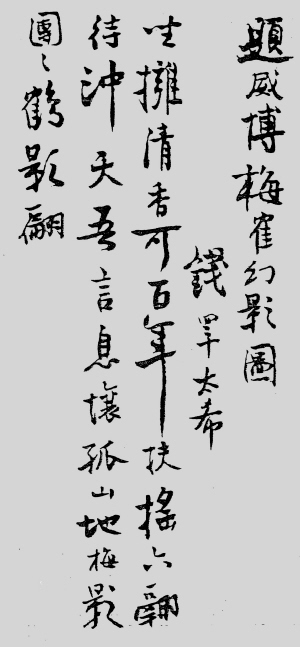 題威博梅隺幻影圖
錢罕太希
坐擁清香可百年扶搖六翮
待沖天吾言息壤孤山地梅影
團〻鶴影翩